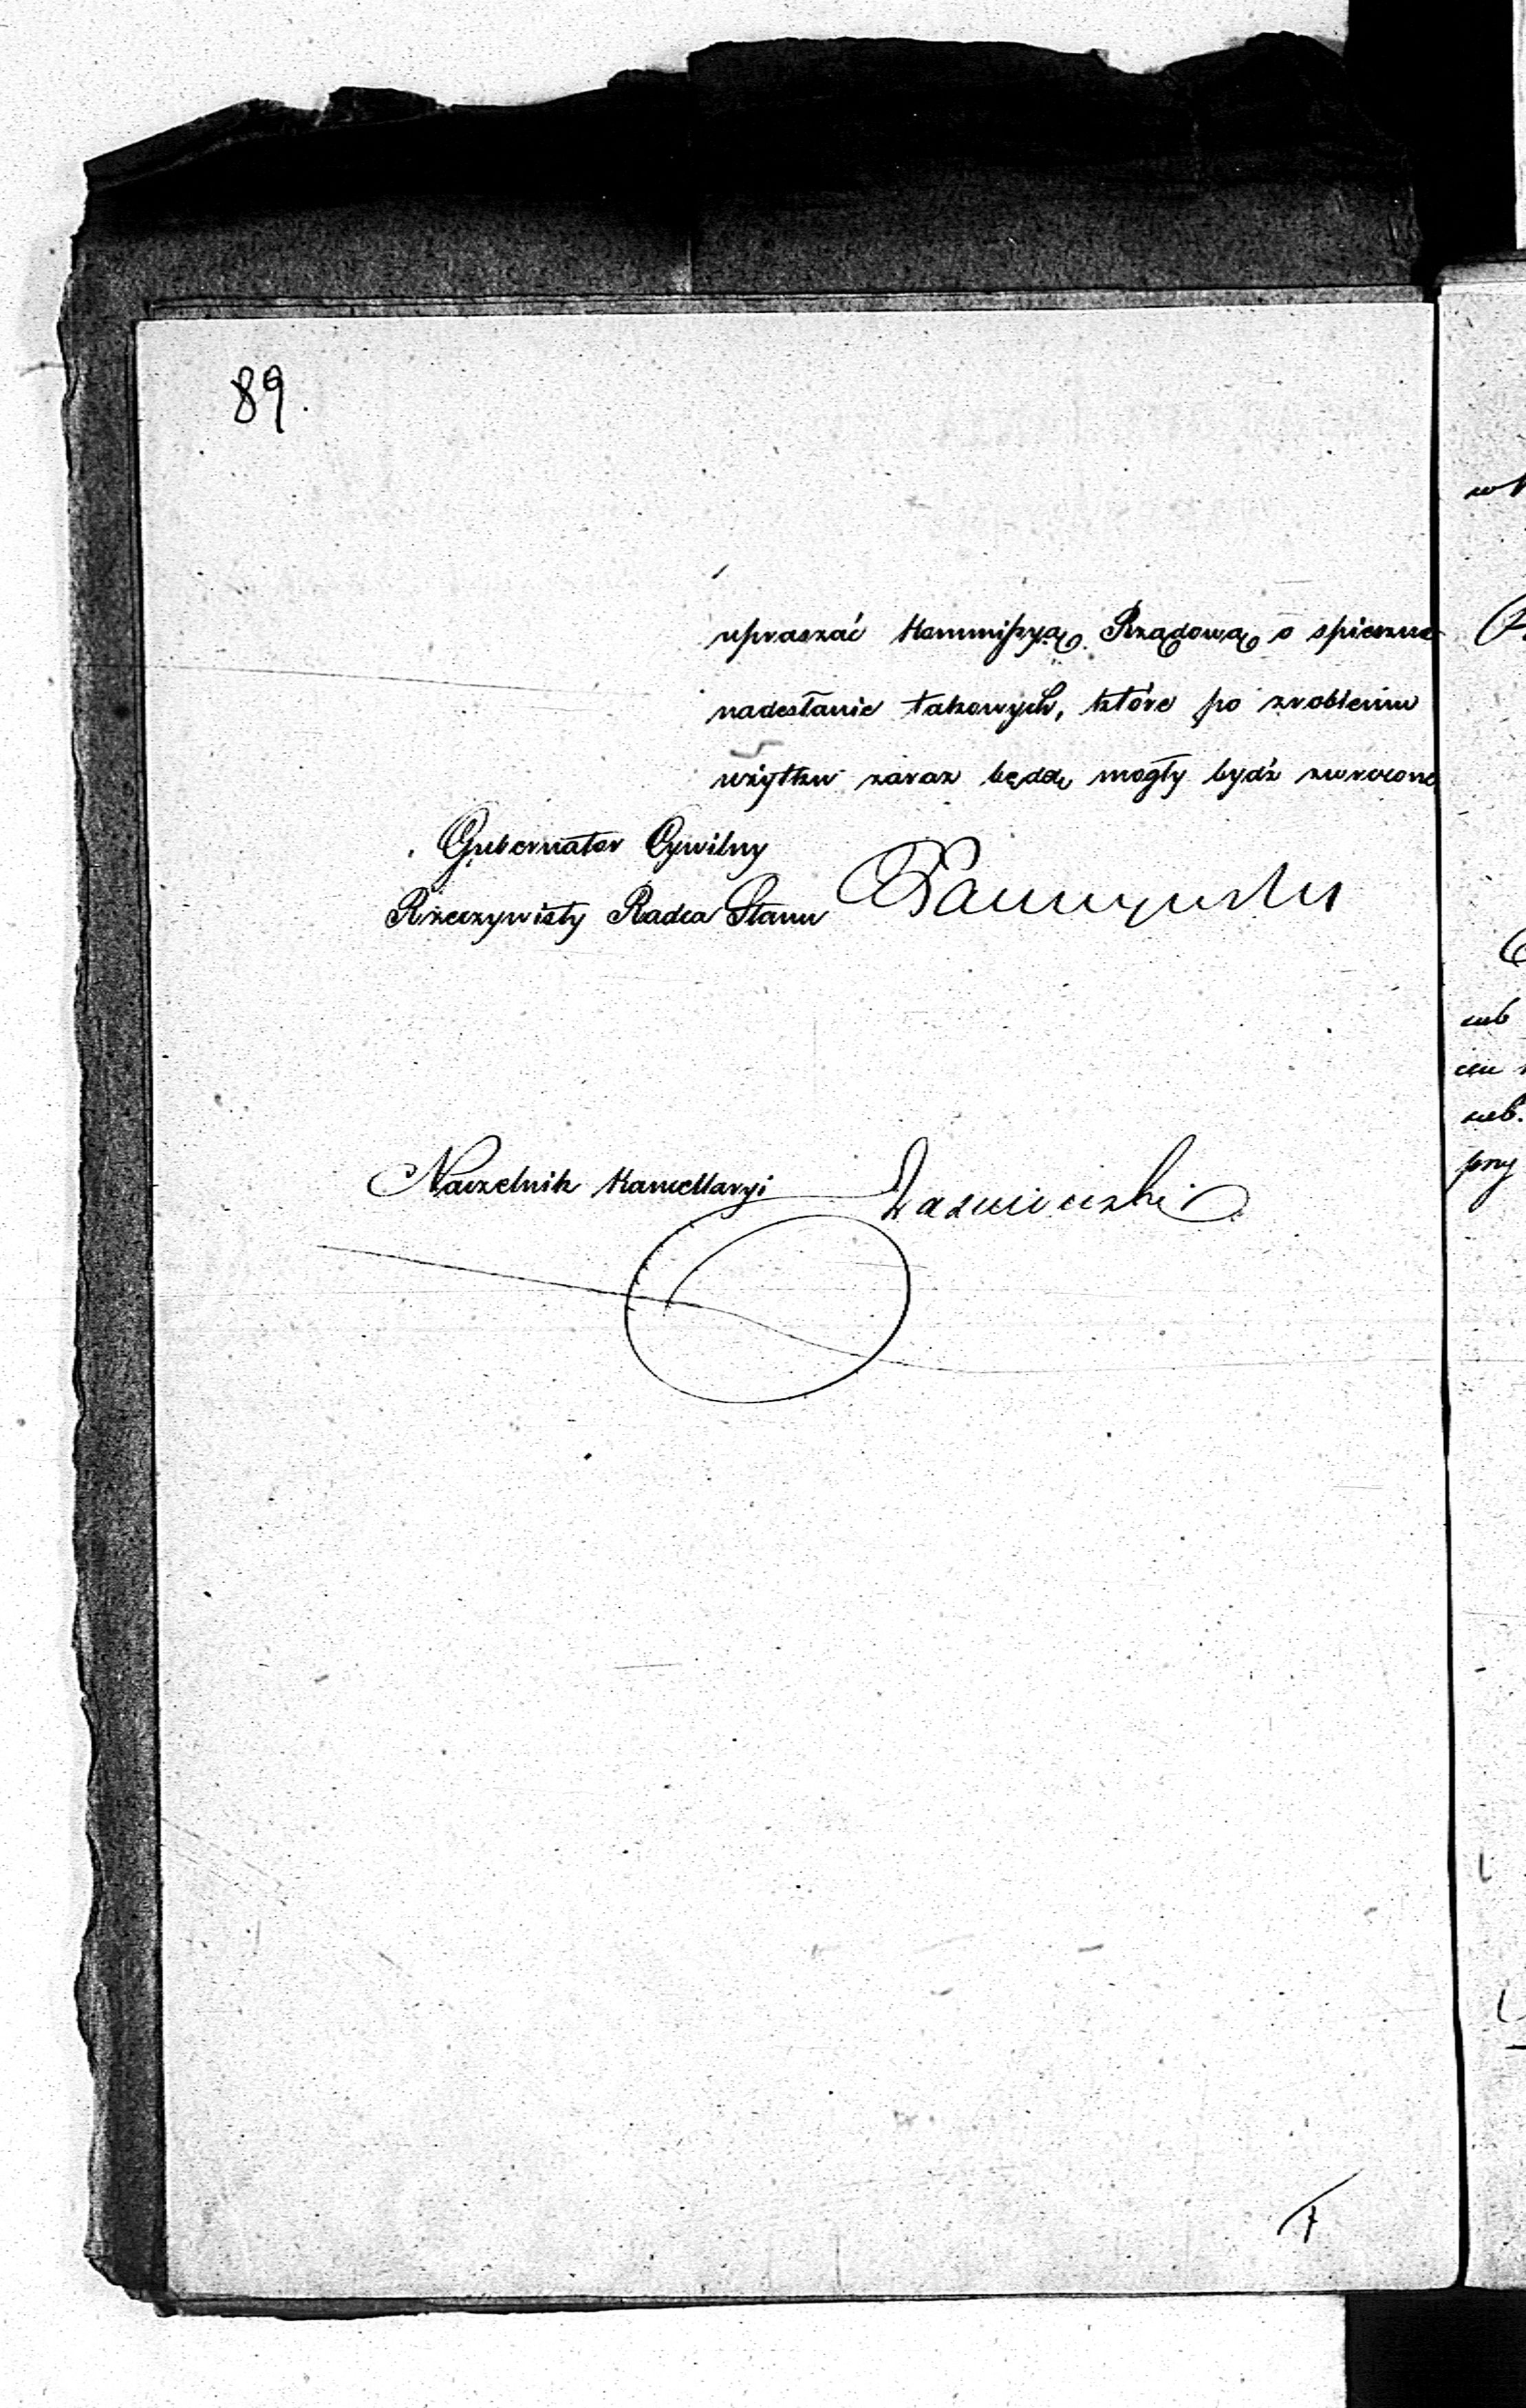 89.
upraszać Kommissyą Rządową o spieszne
nadesłanie takowych, które po zrobieniu
użytku zaraz będą mogły bydź zwrócone
Gubernator Cywilny
Rzeczywisty Radca Stanu
Naczelnik Kancellaryi